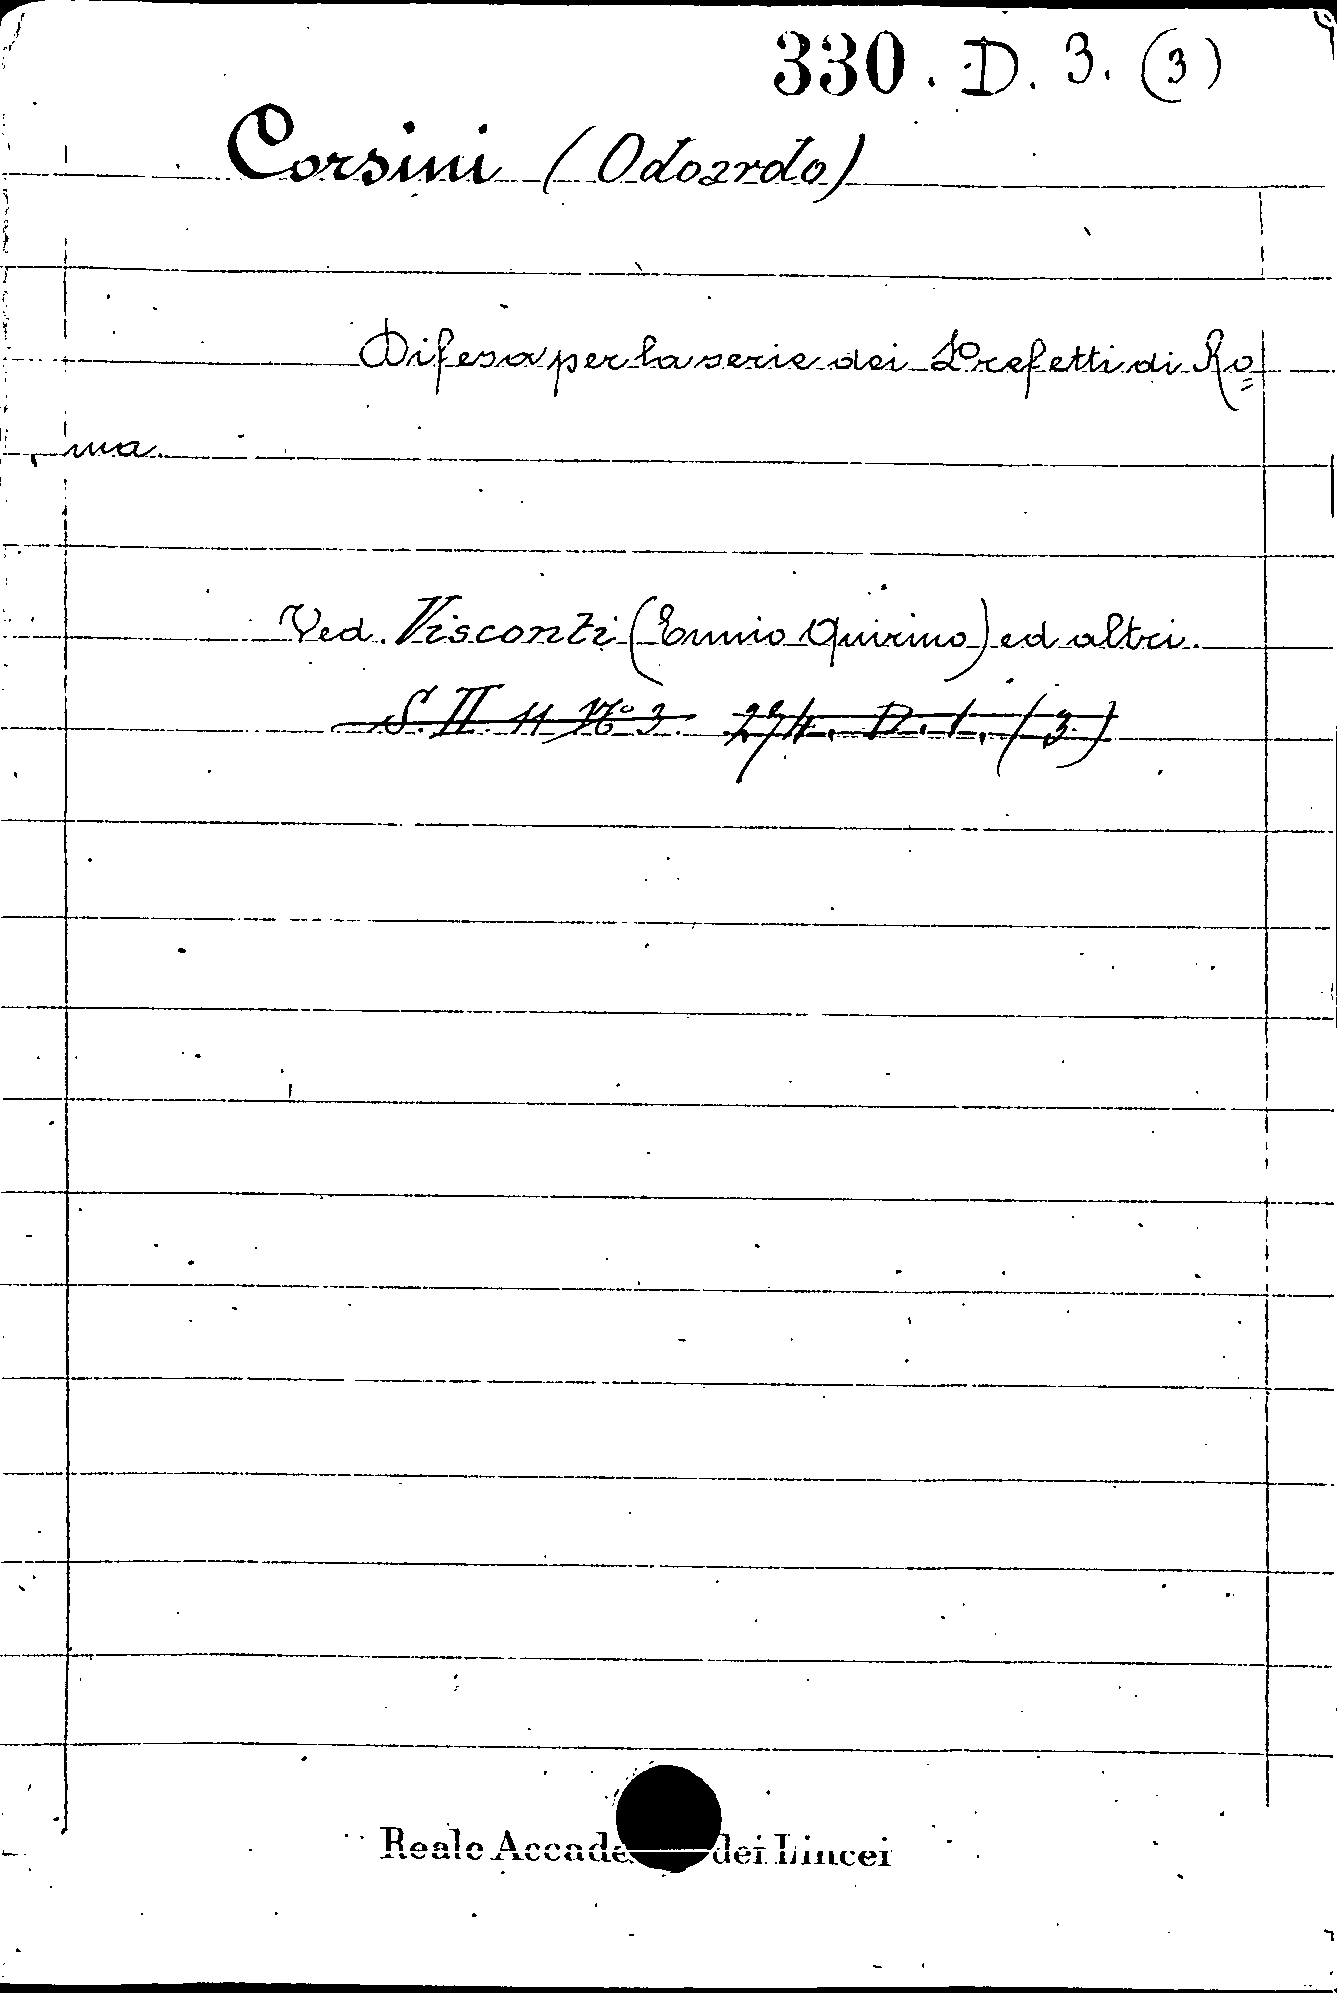 330. D. 3. (3)
Corsini (Odoardo)
Difesa per la serie dei Prefetti di Ro=
ma.
Ved. Visconti (Ennio Quirino) ed altri.
S. II. 11 No. 3. 274. D. 1. (3)
Reale Accade dei Lincei